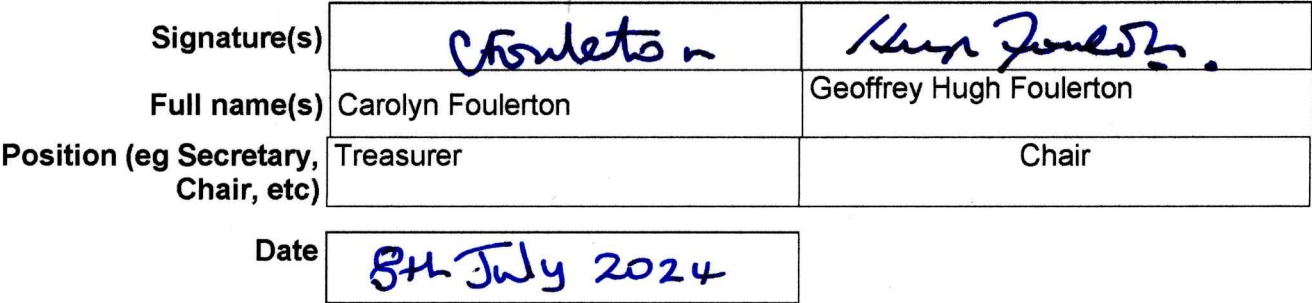 Signature(s) CFoulerton Hugh Foulerton.
Full name(s) Carolyn Foulerton Geoffrey Hugh Foulerton
Position (eg Secretary, Treasurer Chair
Chair, etc)
Date 8th July 2024